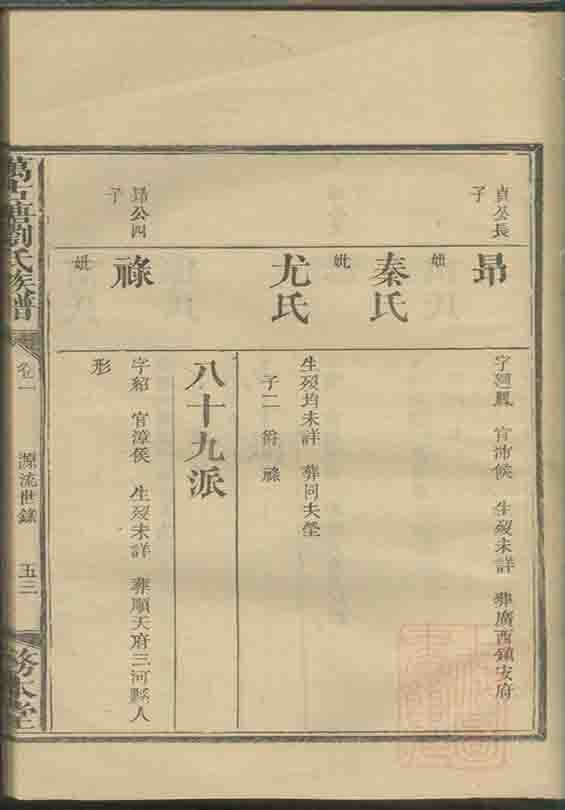 貞公長
子
昂
妣
秦氏
妣
尤氏
字廻鳳 官沛侯 生歿未詳 葬廣西鎮安府
生歿均未詳 葬同夫塋
子二 爵 祿
昂公四
子
祿
妣
八十九派
字紹 官漳侯 生歿未詳 葬順天府三河縣人
形
萬古塘劉氏族譜
卷一
源流世錄
五三
務本堂